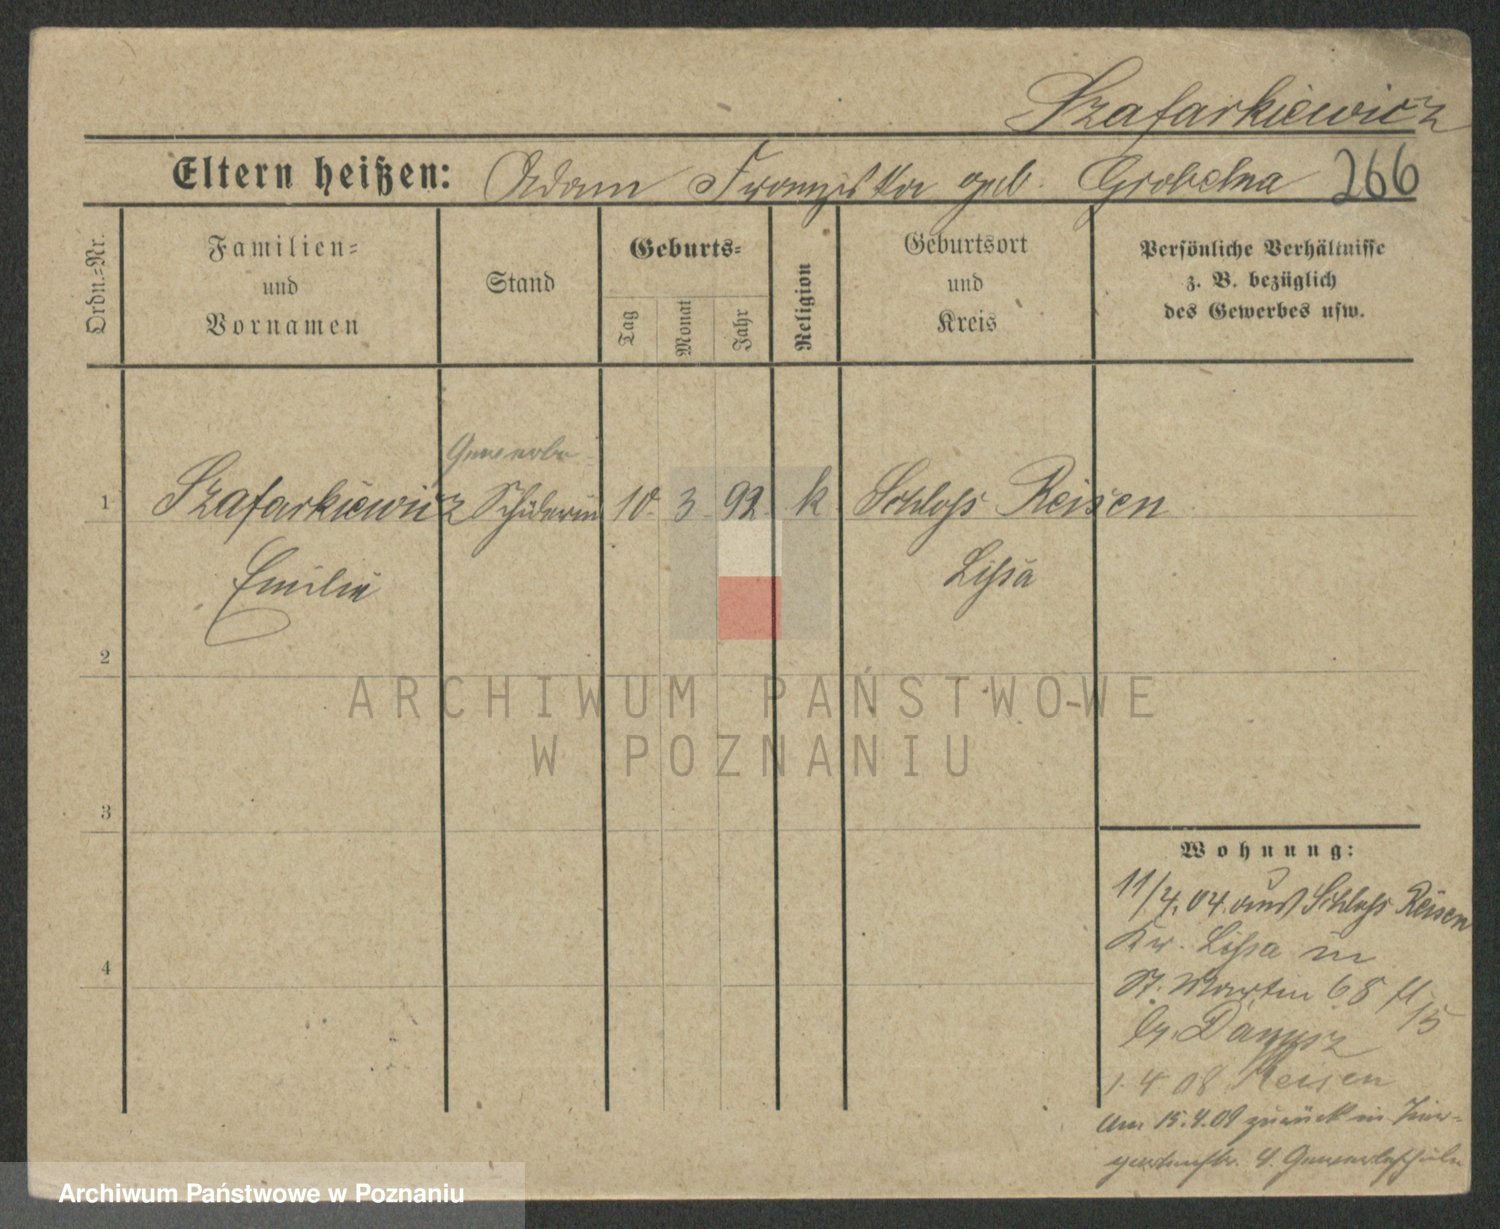 Szafarkiewicz
Eltern heißen: Adam Franziska geb. Grobelna 266
Ordn.=Nr.
Familien=
und
Vornamen
Stand
Geburts=
Tag
Monat
Jahr
Religion
Geburtsort
und
Kreis
Persönliche Verhältnisse
z. B. bezüglich
des Gewerbes usw.
Gewerbe
1 Szafarkiewicz Schülerin 10. 3. 92. k Schloss Reisen
Emilie Lissa
2
ARCHIWUM PAŃSTWOWE
W POZNANIU
3
Wohnung:
11/4.04. aus Schloss Reisen
Kr. Lissa in
4
St. Martin 68 II
b/. Danysz 15
1. 4 08 Reisen
Am 15.4.09 zurück in Tier-
gartenstr. 4. Gewerbeschule
Archiwum Państwowe w Poznaniu